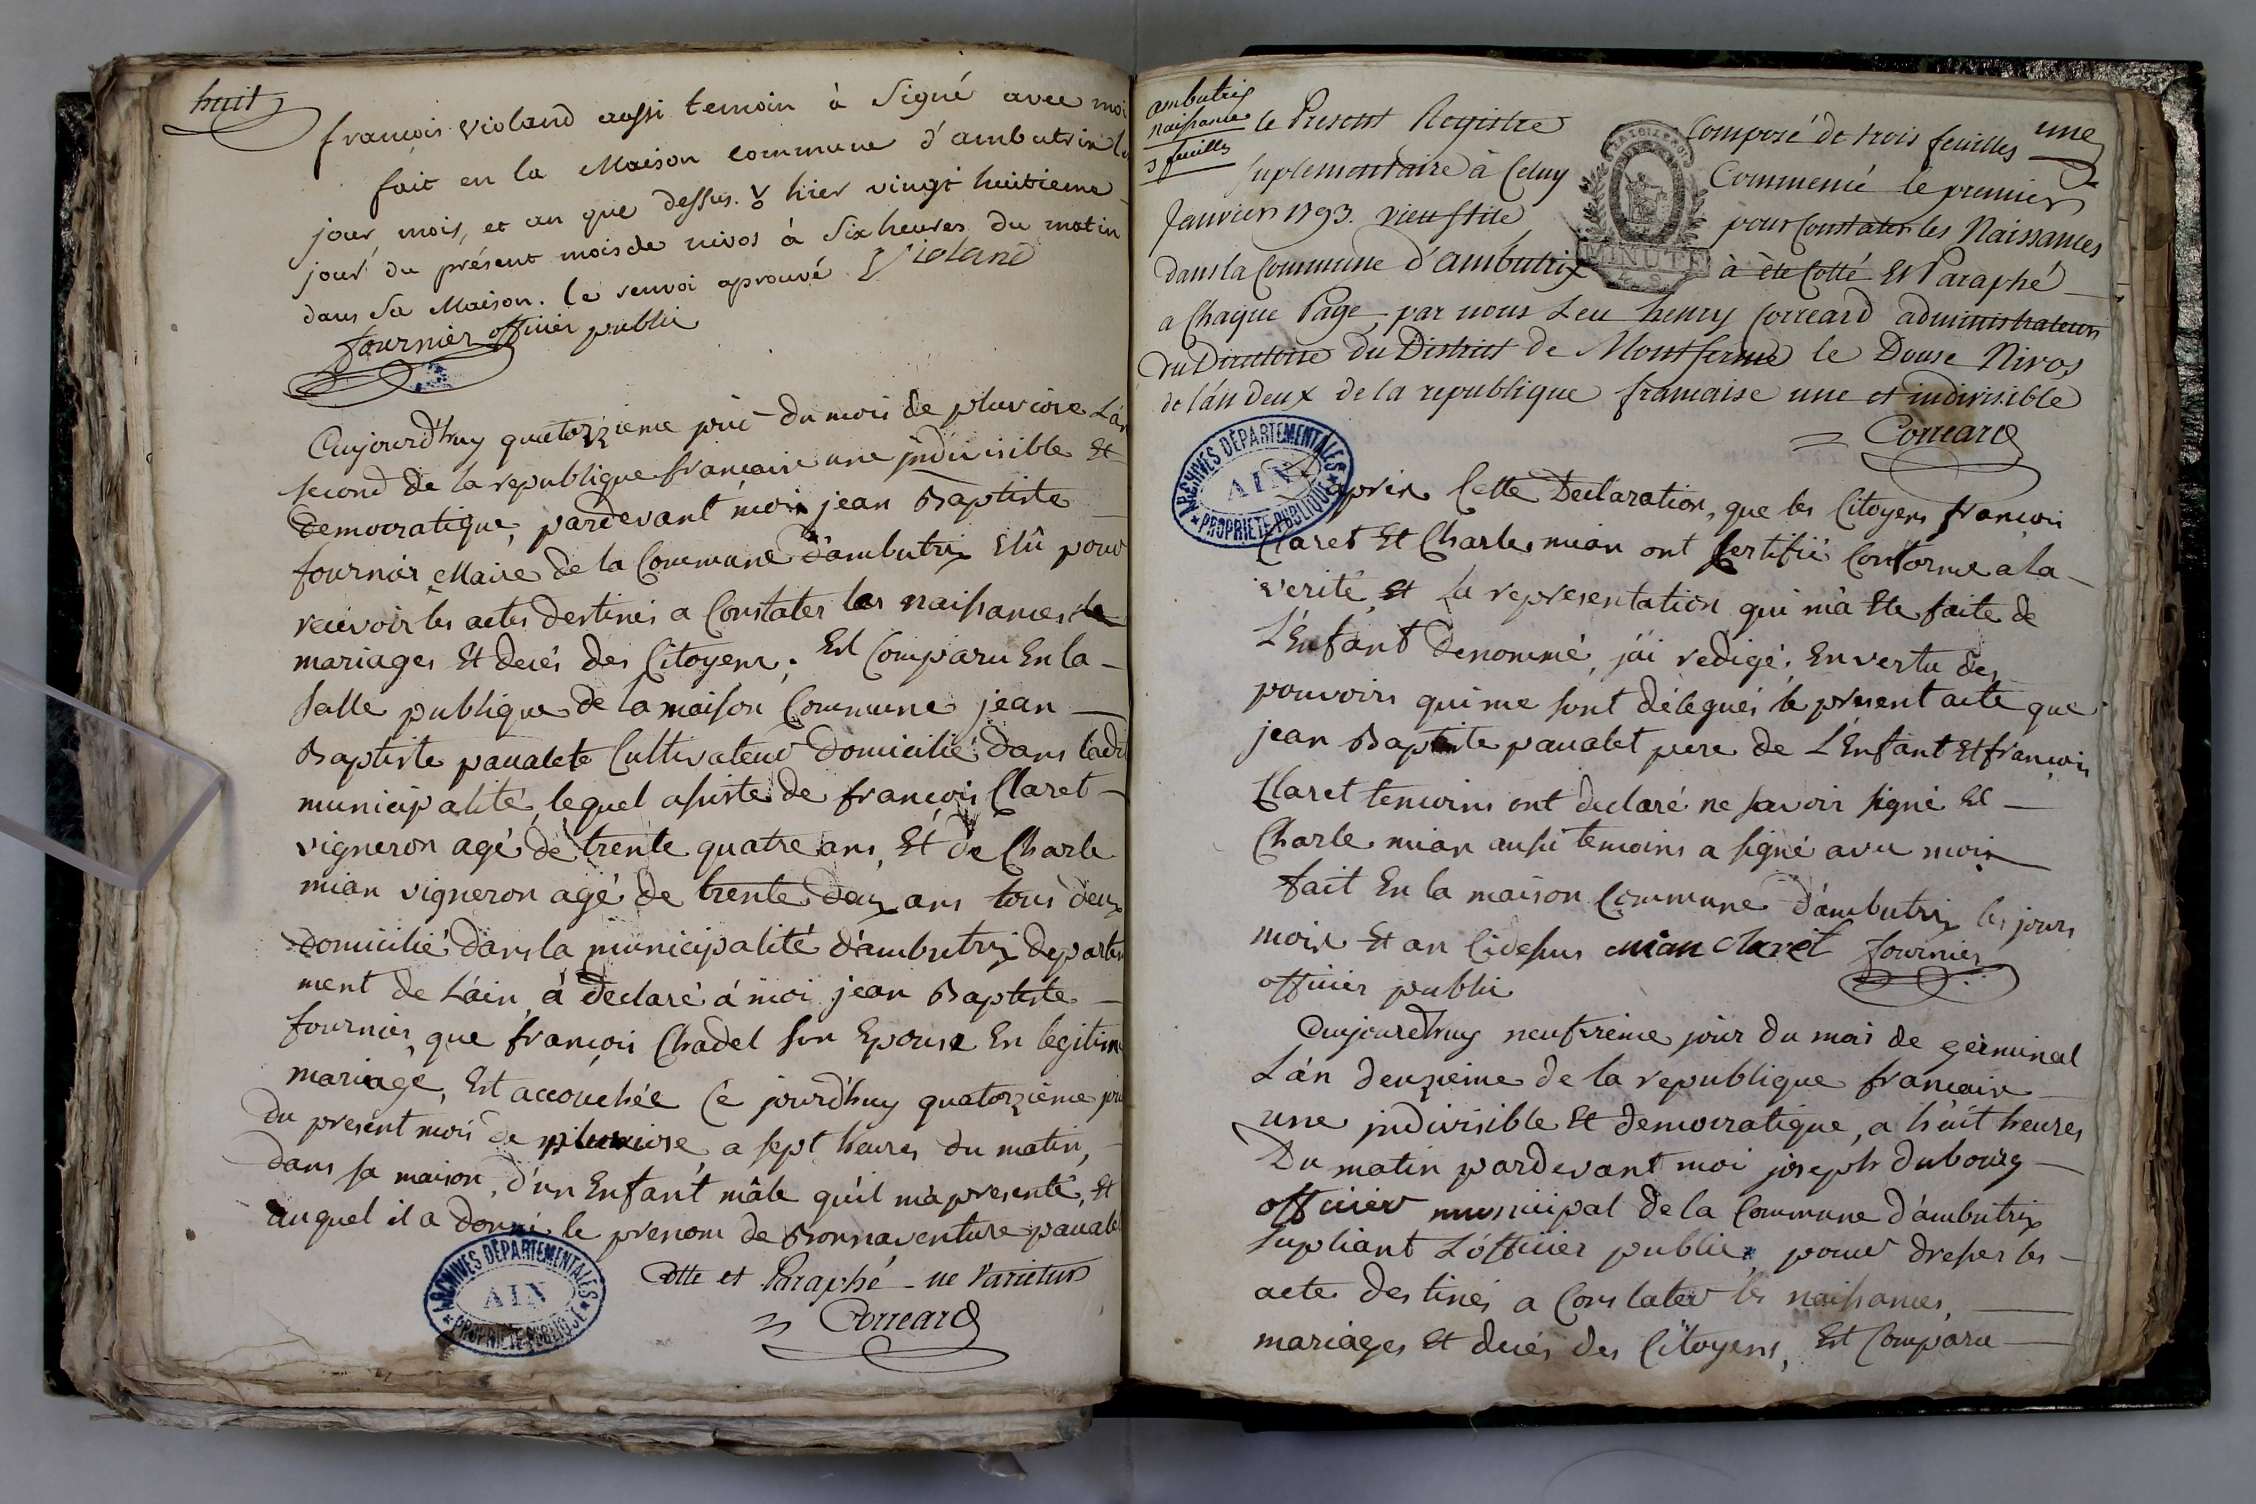 huit
françois violand aussi temoin à signé avec moi
fait en la Maison commune d'ambutrix
jour mois, et an que dessus. hier vingt huitieme
jour du présent mois de nivos à six heures du matin
dans sa Maison. le renvoi aprouvé Violand
fournier officier public
Aujourd'huy quatorzieme jour du mois de pluviose L'an
second de la republique francaise une indivisible Et
Democratique, pardevant moi jean Baptiste
fournier Maire de la Commune d'ambutrix Elû pour
recevoir les actes destinés a Constater les naissances
mariages Et decés des Citoyens, Est Comparu En la
salle publique de la maison Commune jean
Baptiste pavalete Cultivateur Domicilié dans ladi
municipalité, lequel assisté de françois Claret
vigneron agé de trente quatre ans, Et de Charle
mian vigneron agé de trente deux ans tous deux
domicilié dans la municipalité d'ambutrix departe
ment de L'ain, á declaré á moi jean Baptiste
fournier, que françois Chadel son Epouse En legitime
mariage, Est accouchée Ce jourd'huy quatorzieme
du present mois de pluviose, a sept heures du matin,
dans sa maison, d'un Enfant mâle qu'il m'a presenté, Et
auquel il a donné le prenom de Bonnaventure pavalet
Cotte et Paraphé ne Varietur
Correard
ARCHIVES DÉPARTEMENTALES
AIN
PROPRIÉTÉ PUBLIQUE
ambutrix
naissance
3 feuilles
une
le Present Registre Composé de trois feuilles
suplementaire à Celuy Commencé le premier
Janvier 1793. vieu stile pour Constater les Naissances
dans la Commune d'ambutrix à été Cotté Et Paraphé
a Chaque Page, par nous Leu henry Correard administrateur
du Directoire du District de Montferme le Douse Nivos
de l'an Deux de la republique francaise une et indivisible
Correard
MINUTE
ARCHIVES DÉPARTEMENTALES
AIN
PROPRIÉTÉ PUBLIQUE
D'après Cette Declaration, que les Citoyens françois
Claret Et Charle mian ont Certifié Conforme a la
verité, Et La representation qui m'a Ete faite de
L'Enfant Denommé, j'ai redigé, En vertu des
pouvoirs qui me sont délegués le present acte que
jean Baptiste pavalet pere de L'Enfant Et françois
Claret temoins ont declaré ne savoir signé Et
Charle mian aussi temoins a signé avec moi
fait En la maison Commune d'ambutrix les jours
mois Et an Cidessus mian claret fournier
officier public
Aujourdhuy neufvieme jour du mois de germinal
L'án deuzieme de la republique francaise
une indivisible Et democratique, a huit heures
Du matin pardevant moi joseph dubourg
officier municipal de la Commune d'ambutrix
supliant L'officier public, pour dresser les
acte destinés a Constater les naissances,
mariages Et decés des Citoyens, Est Comparu